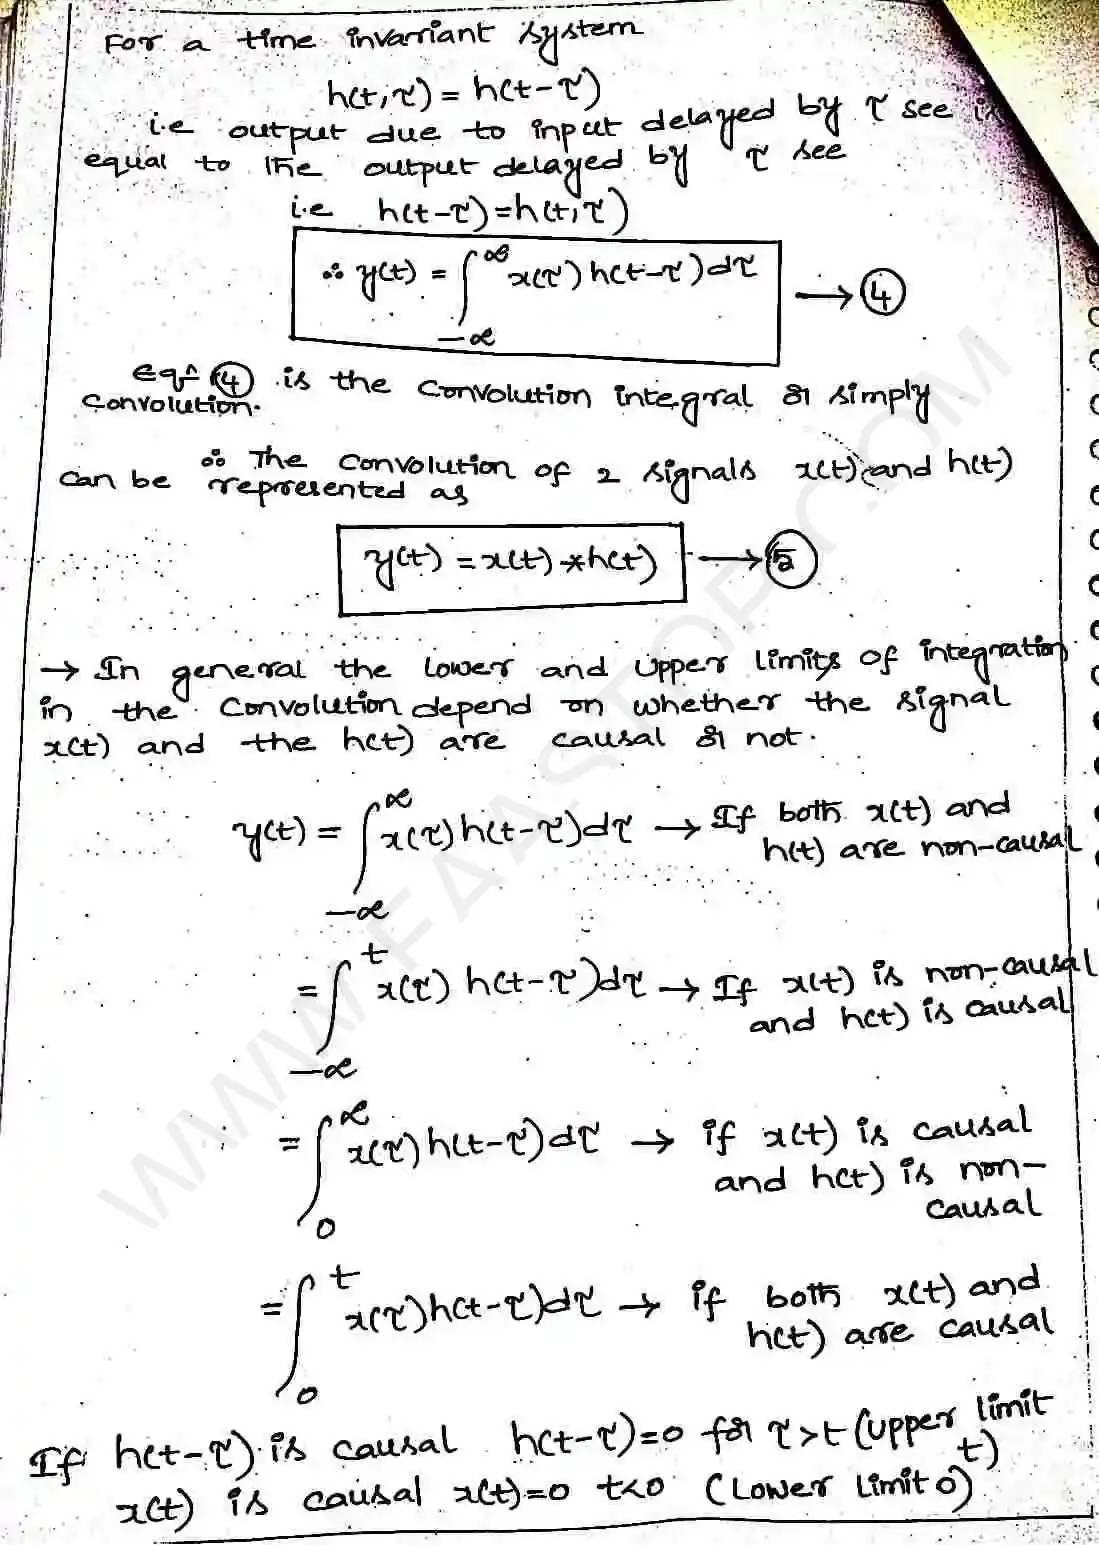 For a time invariant system
h(t,τ) = h(t-τ)
i.e output due to input delayed by τ see is
equal to the output delayed by τ see
i.e h(t-τ)=h(t,τ)
∴ y(t) = ∫_{-∞}^{∞} x(τ) h(t-τ) dτ → ④
eqn ④ is the convolution integral or simply
convolution.
∴ The convolution of 2 signals x(t) and h(t)
can be represented as
y(t) = x(t) * h(t) → ⑤
→ In general the lower and upper limits of integration
in the convolution depend on whether the signal
x(t) and the h(t) are causal or not.
y(t) = ∫_{-∞}^{∞} x(τ) h(t-τ)dτ → If both x(t) and
h(t) are non-causal
= ∫_{-∞}^{t} x(τ) h(t-τ)dτ → If x(t) is non-causal
and h(t) is causal
= ∫_{0}^{∞} x(τ) h(t-τ)dτ → if x(t) is causal
and h(t) is non-
causal
= ∫_{0}^{t} x(τ)h(t-τ)dτ → if both x(t) and
h(t) are causal
If h(t-τ) is causal h(t-τ)=0 for τ>t (upper limit
t)
x(t) is causal x(t)=0 t<0 (Lower limit 0)
WWW.FAASTOP
.COM